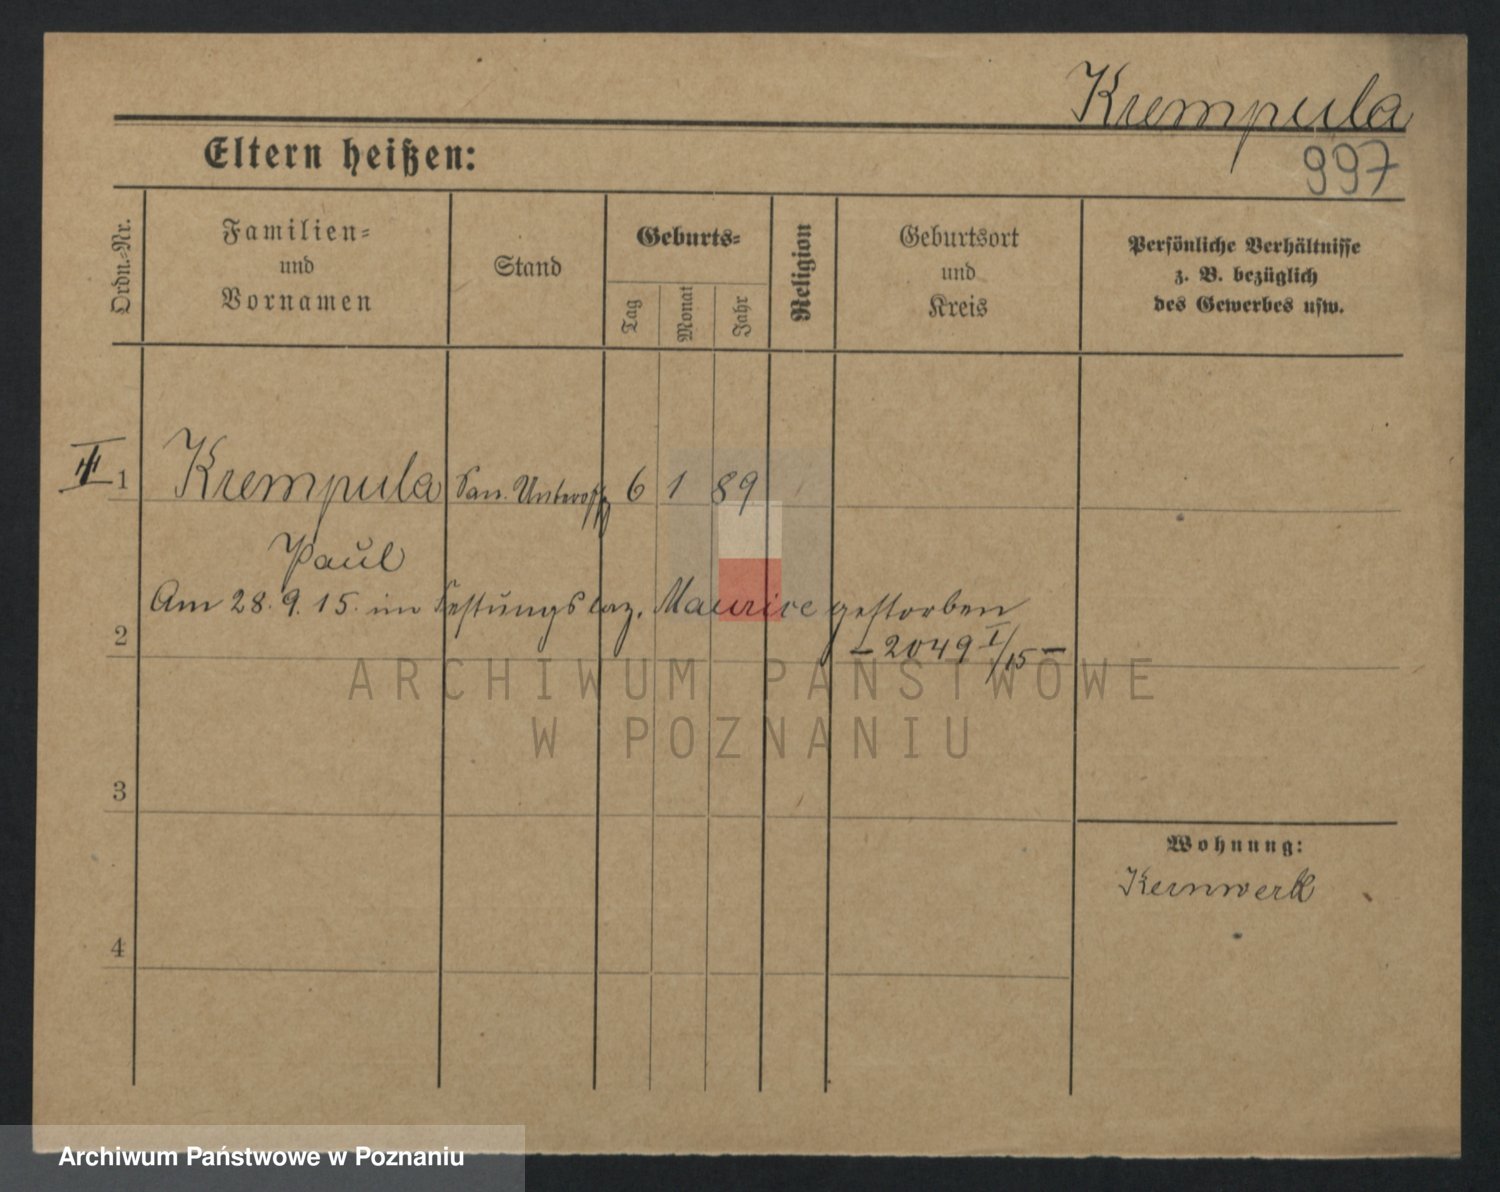 Krempula
997
Eltern heißen:
Ordn.-Nr.
Familien-
und
Vornamen
Stand
Geburts-
Tag
Monat
Jahr
Religion
Geburtsort
und
Kreis
Persönliche Verhältnisse
z. B. bezüglich
des Gewerbes usw.
1 Krempula San. Unteroff. 6 1 89
Paul
Am 28. 9. 15. im Festungslaz. Maurice gestorben
2
- 2049 I/15 -
ARCHIWUM PAŃSTWOWE
W POZNANIU
3
Wohnung:
Kernwerk
4
Archiwum Państwowe w Poznaniu